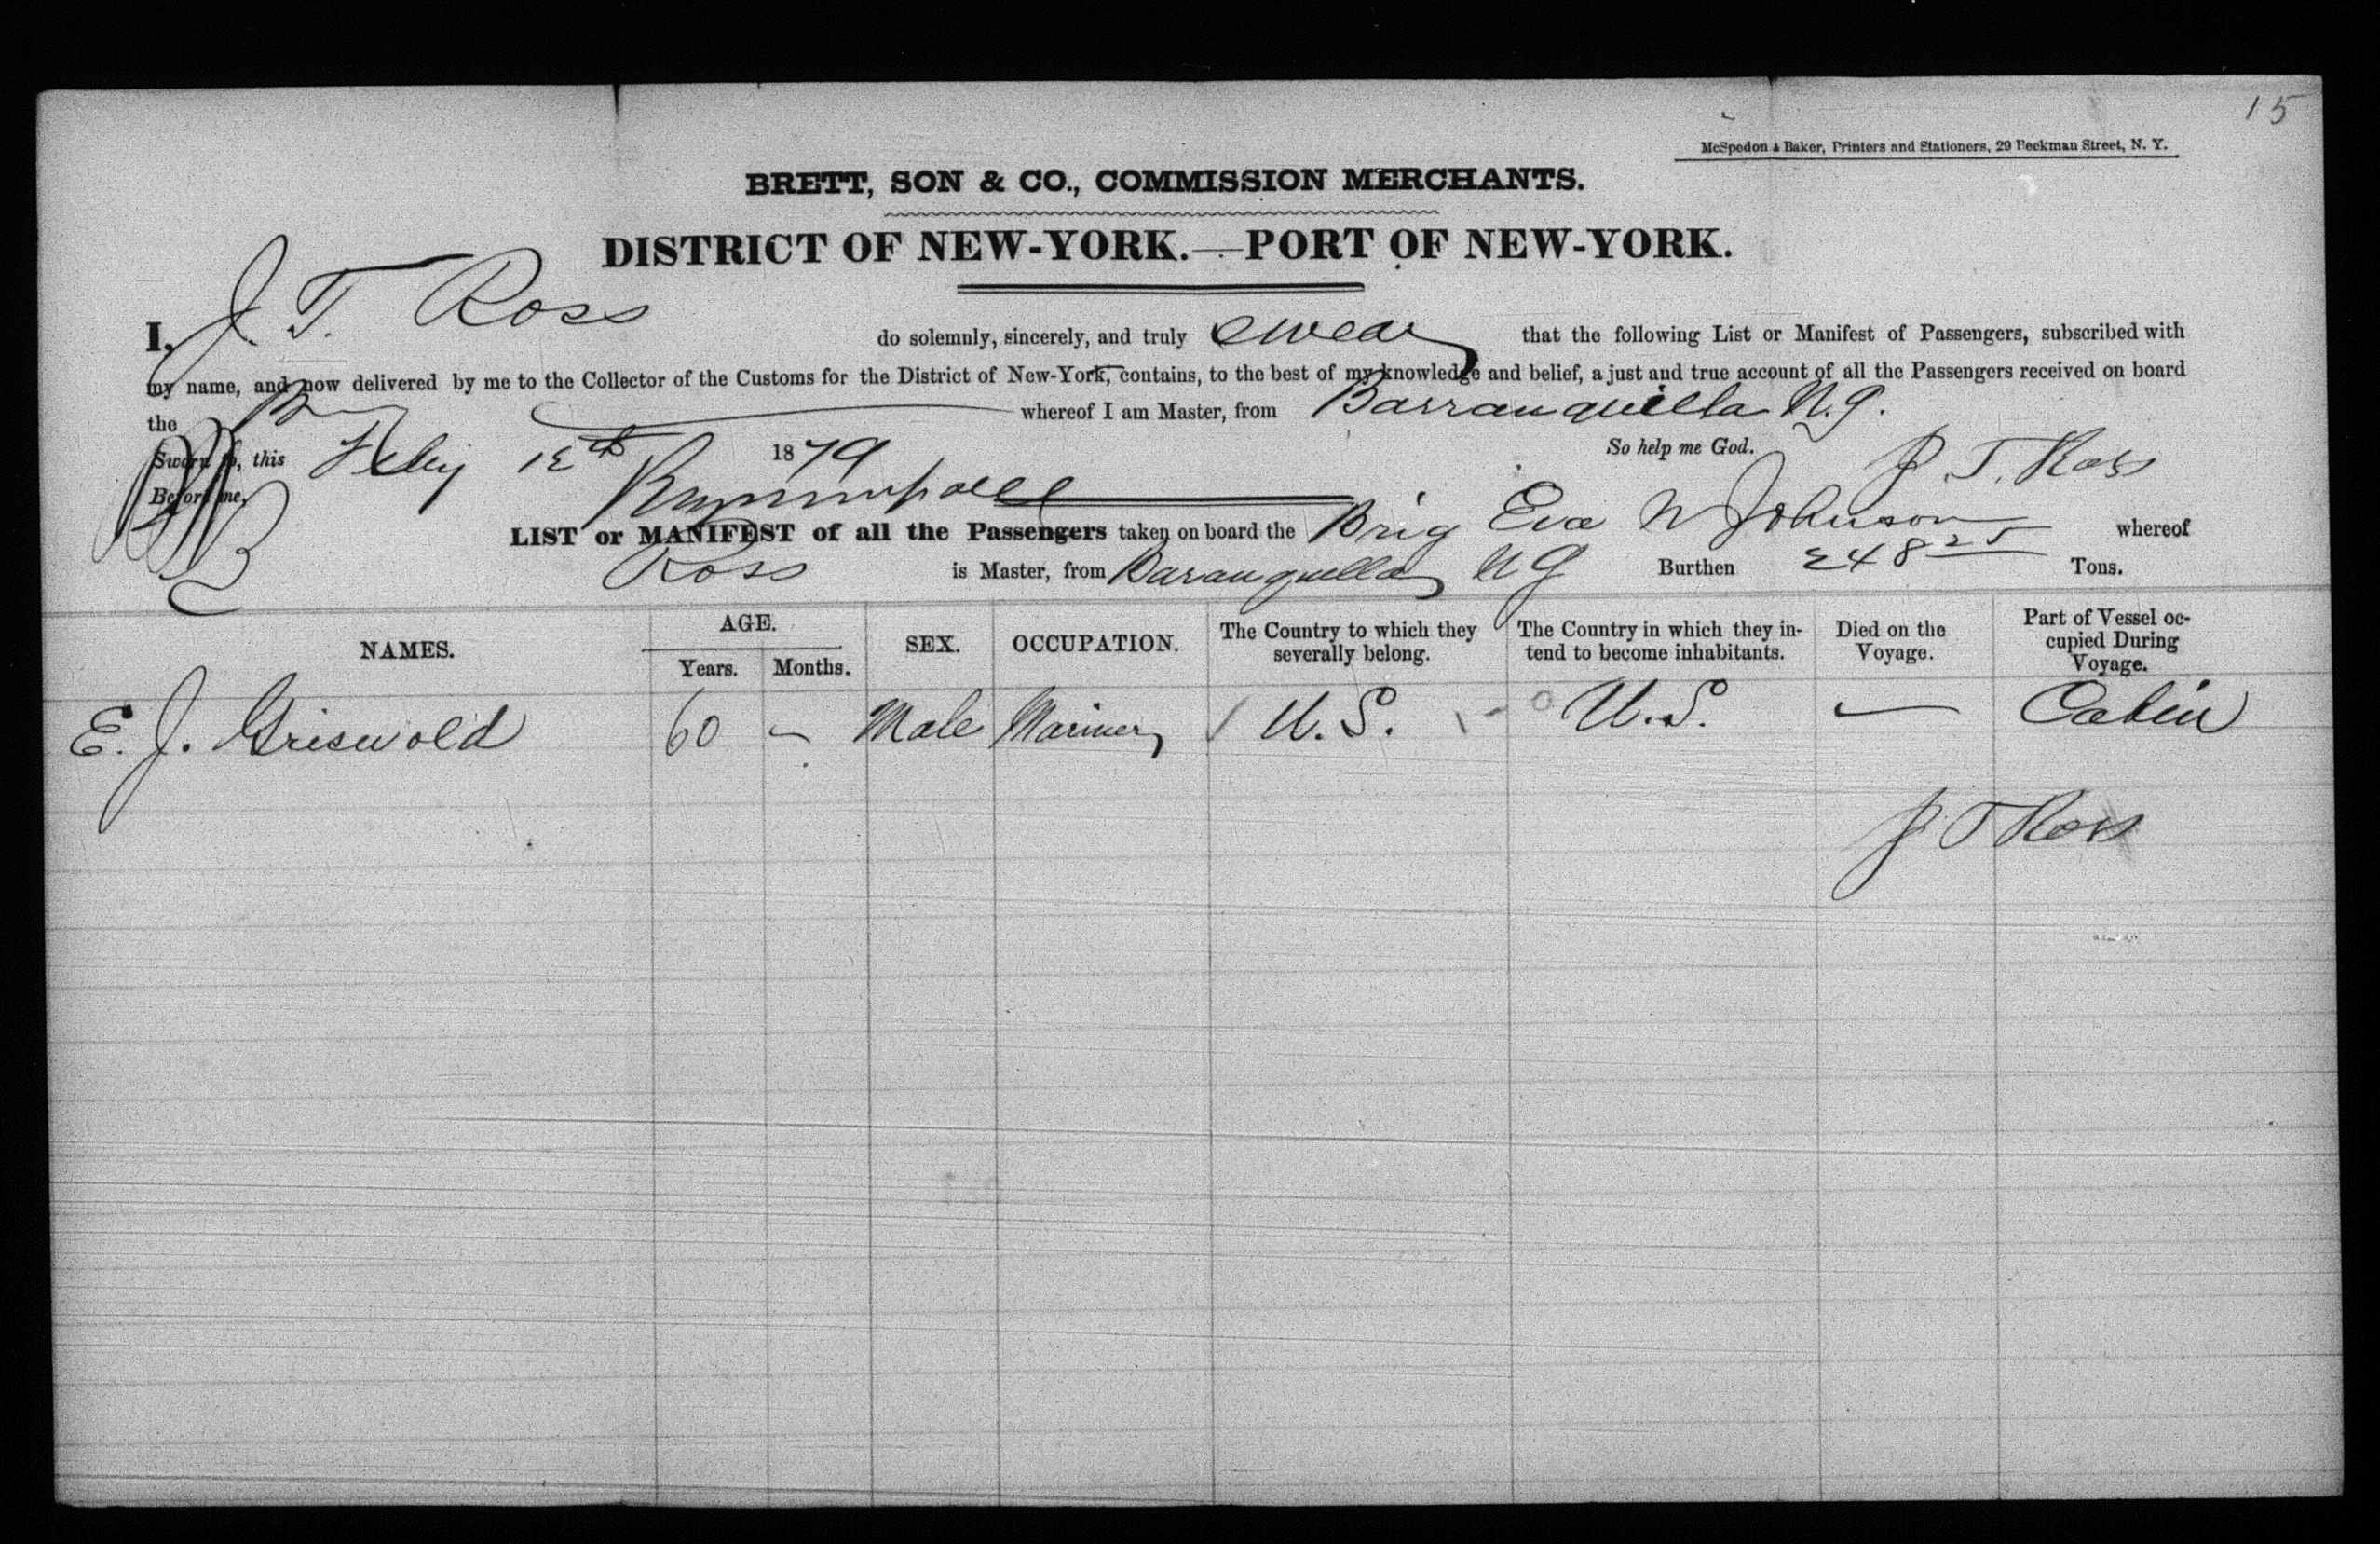 15
McSpedon & Baker, Printers and Stationers, 29 Beekman Street, N. Y.
BRETT, SON & CO., COMMISSION MERCHANTS.
DISTRICT OF NEW-YORK.—PORT OF NEW-YORK.
I, J. T. Ross do solemnly, sincerely, and truly swear that the following List or Manifest of Passengers, subscribed with
my name, and now delivered by me to the Collector of the Customs for the District of New-York, contains, to the best of my knowledge and belief, a just and true account of all the Passengers received on board
the whereof I am Master, from Barranquilla N. G.
Sworn to, this Feby 12th 1879 So help me God. J. T. Ross
Before me,
LIST or MANIFEST of all the Passengers taken on board the Brig Eva N Johnson whereof
Ross is Master, from Baranquilla N G Burthen 248 25 Tons.
NAMES. AGE. SEX. OCCUPATION. The Country to which they severally belong. The Country in which they intend to become inhabitants. Died on the Voyage. Part of Vessel occupied During Voyage.
Years. Months.
E. J. Griswold 60 - Male Mariner U. S. U. S. — Cabin
J T Ross